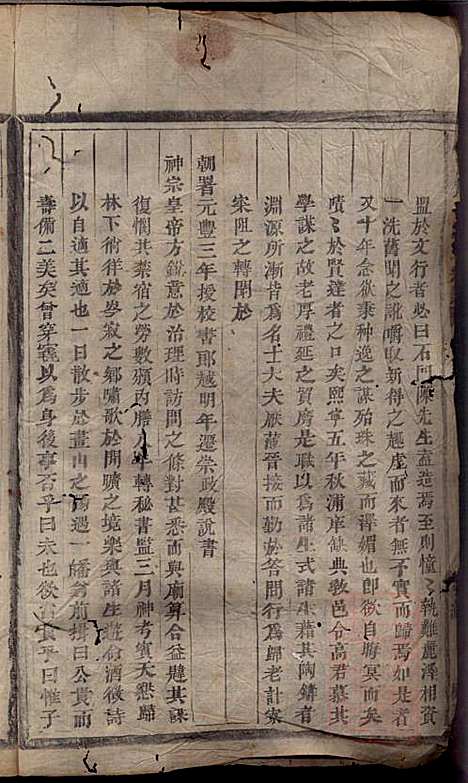 盟於文行者必曰石門陳先生盍造焉至則憧〻執難麗澤相資
一洗舊聞之訛嚼取新得之趣虛而來者無不實而歸焉如是者
又十年念欲秉种逸之謀殆珠之藏而澤媚也即欲自晦冥而矣
嘖〻於賢達者之口矣熙寧五年秋浦庠缺典敎邑令高君慕其
學謀之故老厚禮延之賁席是職以爲諸生式諸生藉其陶鑄者
淵源所漸皆爲名士大夫厭舊晉接而勤於答問行爲歸老計寀
寀阻之轉聞於
朝署元豐三年授校書耶越明年遷崇政殿說書
神宗皇帝方銳意於治理時訪問之條對甚悉而與廟算合益韙其謀
復憫其禁宿之勞數頒內膳八年轉秘書監三月神考賓天懇歸
林下徜徉於岑寂之鄉嘯歌於閒曠之境樂與諸生遊命酒徵詩
以自適其適也一日散步於畫山之陽遇一皤翁前揖曰公貴而
壽備二美矣曾穿窀以爲身後事否乎曰未也欲 乎曰惟子